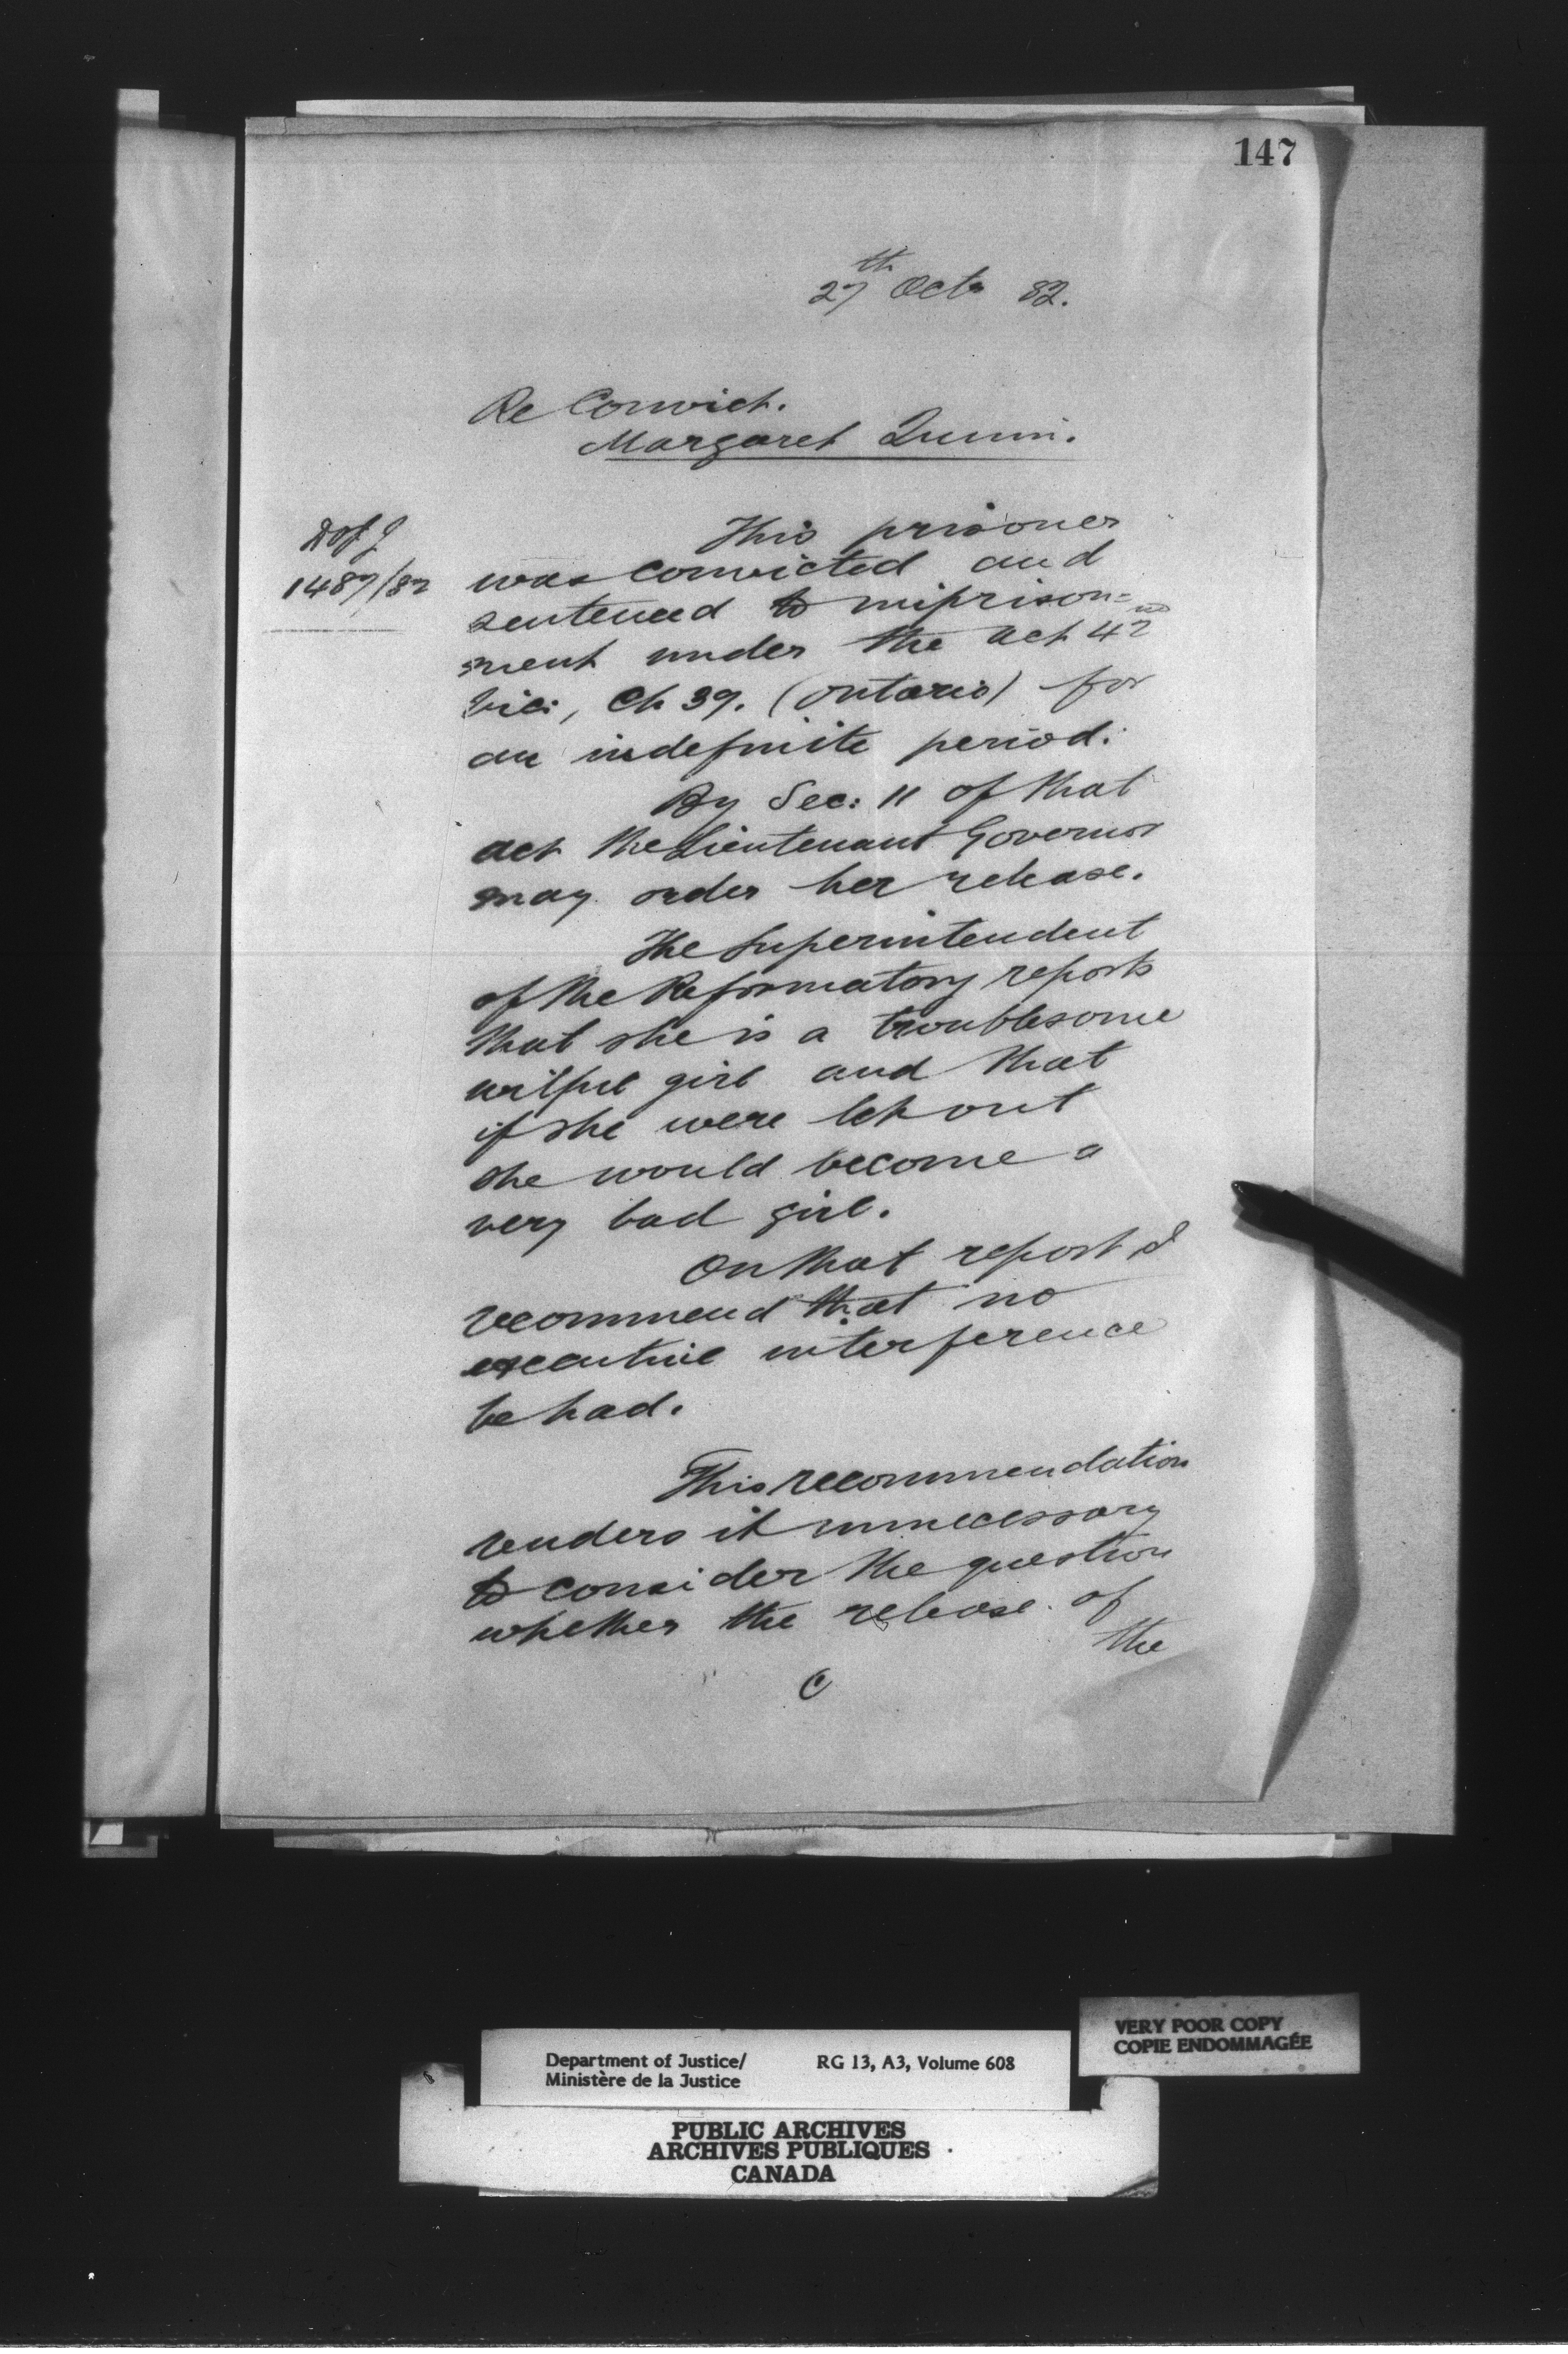 147
27th Octr 82.
Re Convict.
Margaret Quinn.
D of J
1487/82
This prisoner
was convicted and
sentenced to imprison=
ment under the act 42nd
Vic:, Ch 39. (Ontario) for
an indefinite period.
By Sec: 11 of that
act the Lieutenant Governor
may order her release.
The Superintendent
of the Reformatory reports
that she is a troublesome
wilful girl and that
if she were let out
she would become a
very bad girl.
On that report I
recommend that no
executive interference
be had.
This recommendation
renders it unnecessary
to consider the question
whether the release of
the
VERY POOR COPY
COPIE ENDOMMAGÉE
Department of Justice/ RG 13, A3, Volume 608
Ministère de la Justice
PUBLIC ARCHIVES
ARCHIVES PUBLIQUES
CANADA